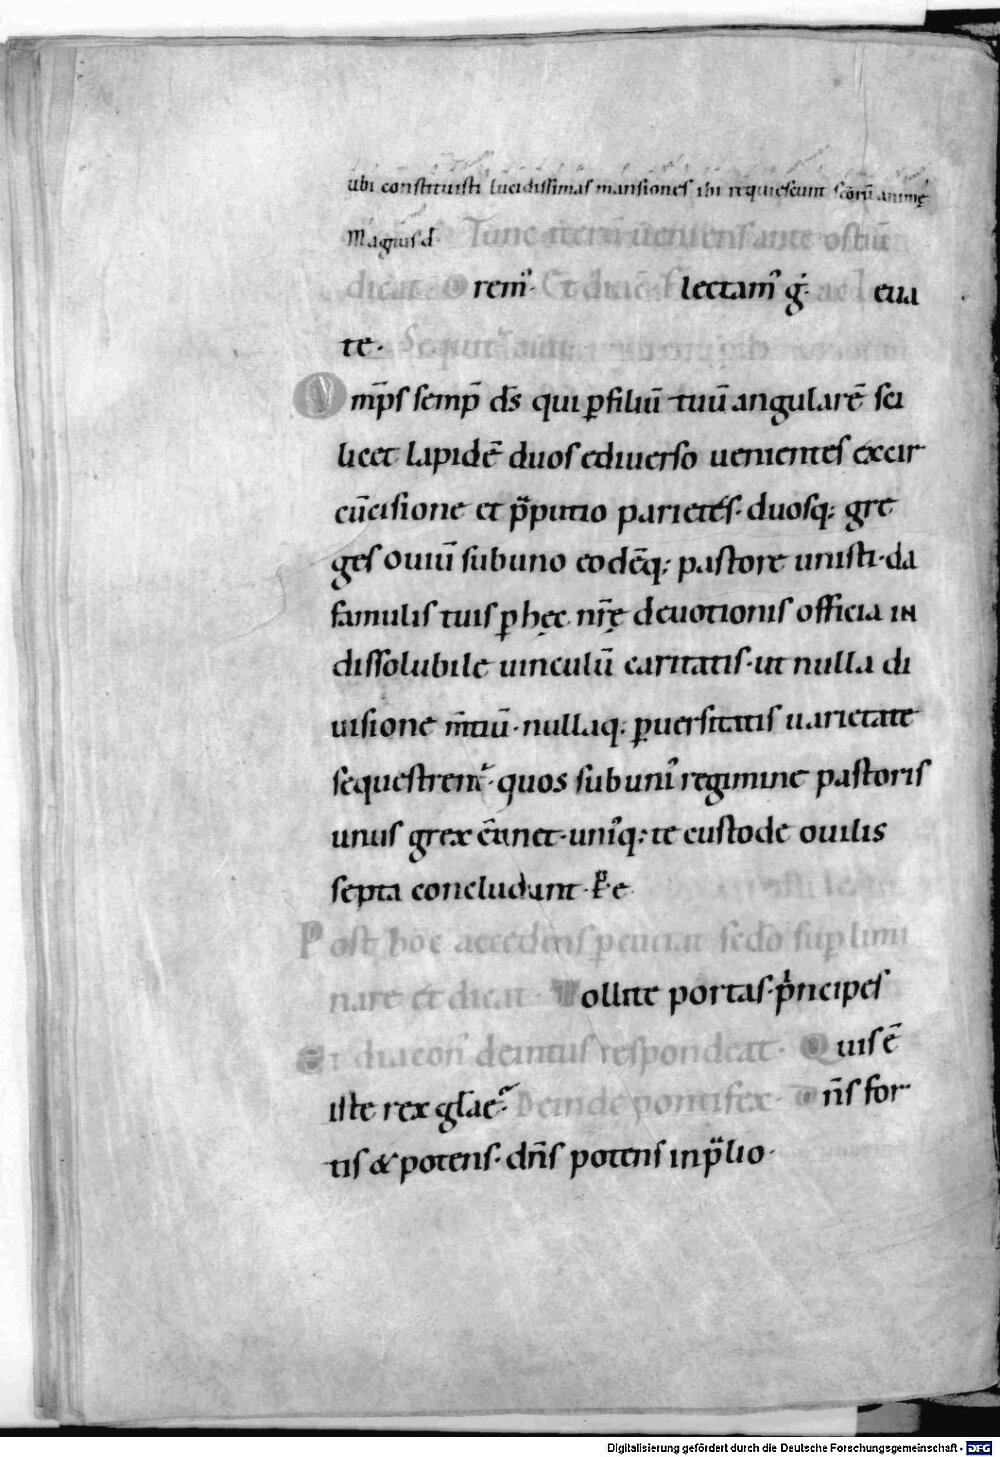 ubi constituisti lucidissimas mansiones ibi requiescunt scōrū animę
Magnus d Tunc iterū ueniens ante ostiū
dicat Orem᷒· Et diac̄ lectam᷒ g· ac l eua
te· Sequit̄
Omp̄s semp̄ ds̄ qui ꝑfiliū tuū angularē sci
licet lapidē duos ediuerso uenientes excir
cūcisione et p̄putio parietes· duosq; gre
ges ouiū subuno eodēq; pastore unisti· da
famulis tuis ꝑ hęc nr̄ę deuotionis officia in
dissolubile uinculū caritatis· ut nulla di
uisione m̄tiū· nullaq; ꝑuersitatis uarietate
sequestrent᷒· quos sub uni᷒ regimine pastoris
unus grex c̄tinet· uni᷒q; te custode ouilis
septa concludunt· P e
Post hoc accedens ꝑcuciat sc̄do suꝑlimi
nare et dicat· Tollite portas· pͥncipes
Et diacon̄ deintus respondeat· Quis ē
iste rex glae· Deinde pontifex· Dn̄s for
tis & potens· dn̄s potens inp̄lio·
Digitalisierung gefördert durch die Deutsche Forschungsgemeinschaft - DFG